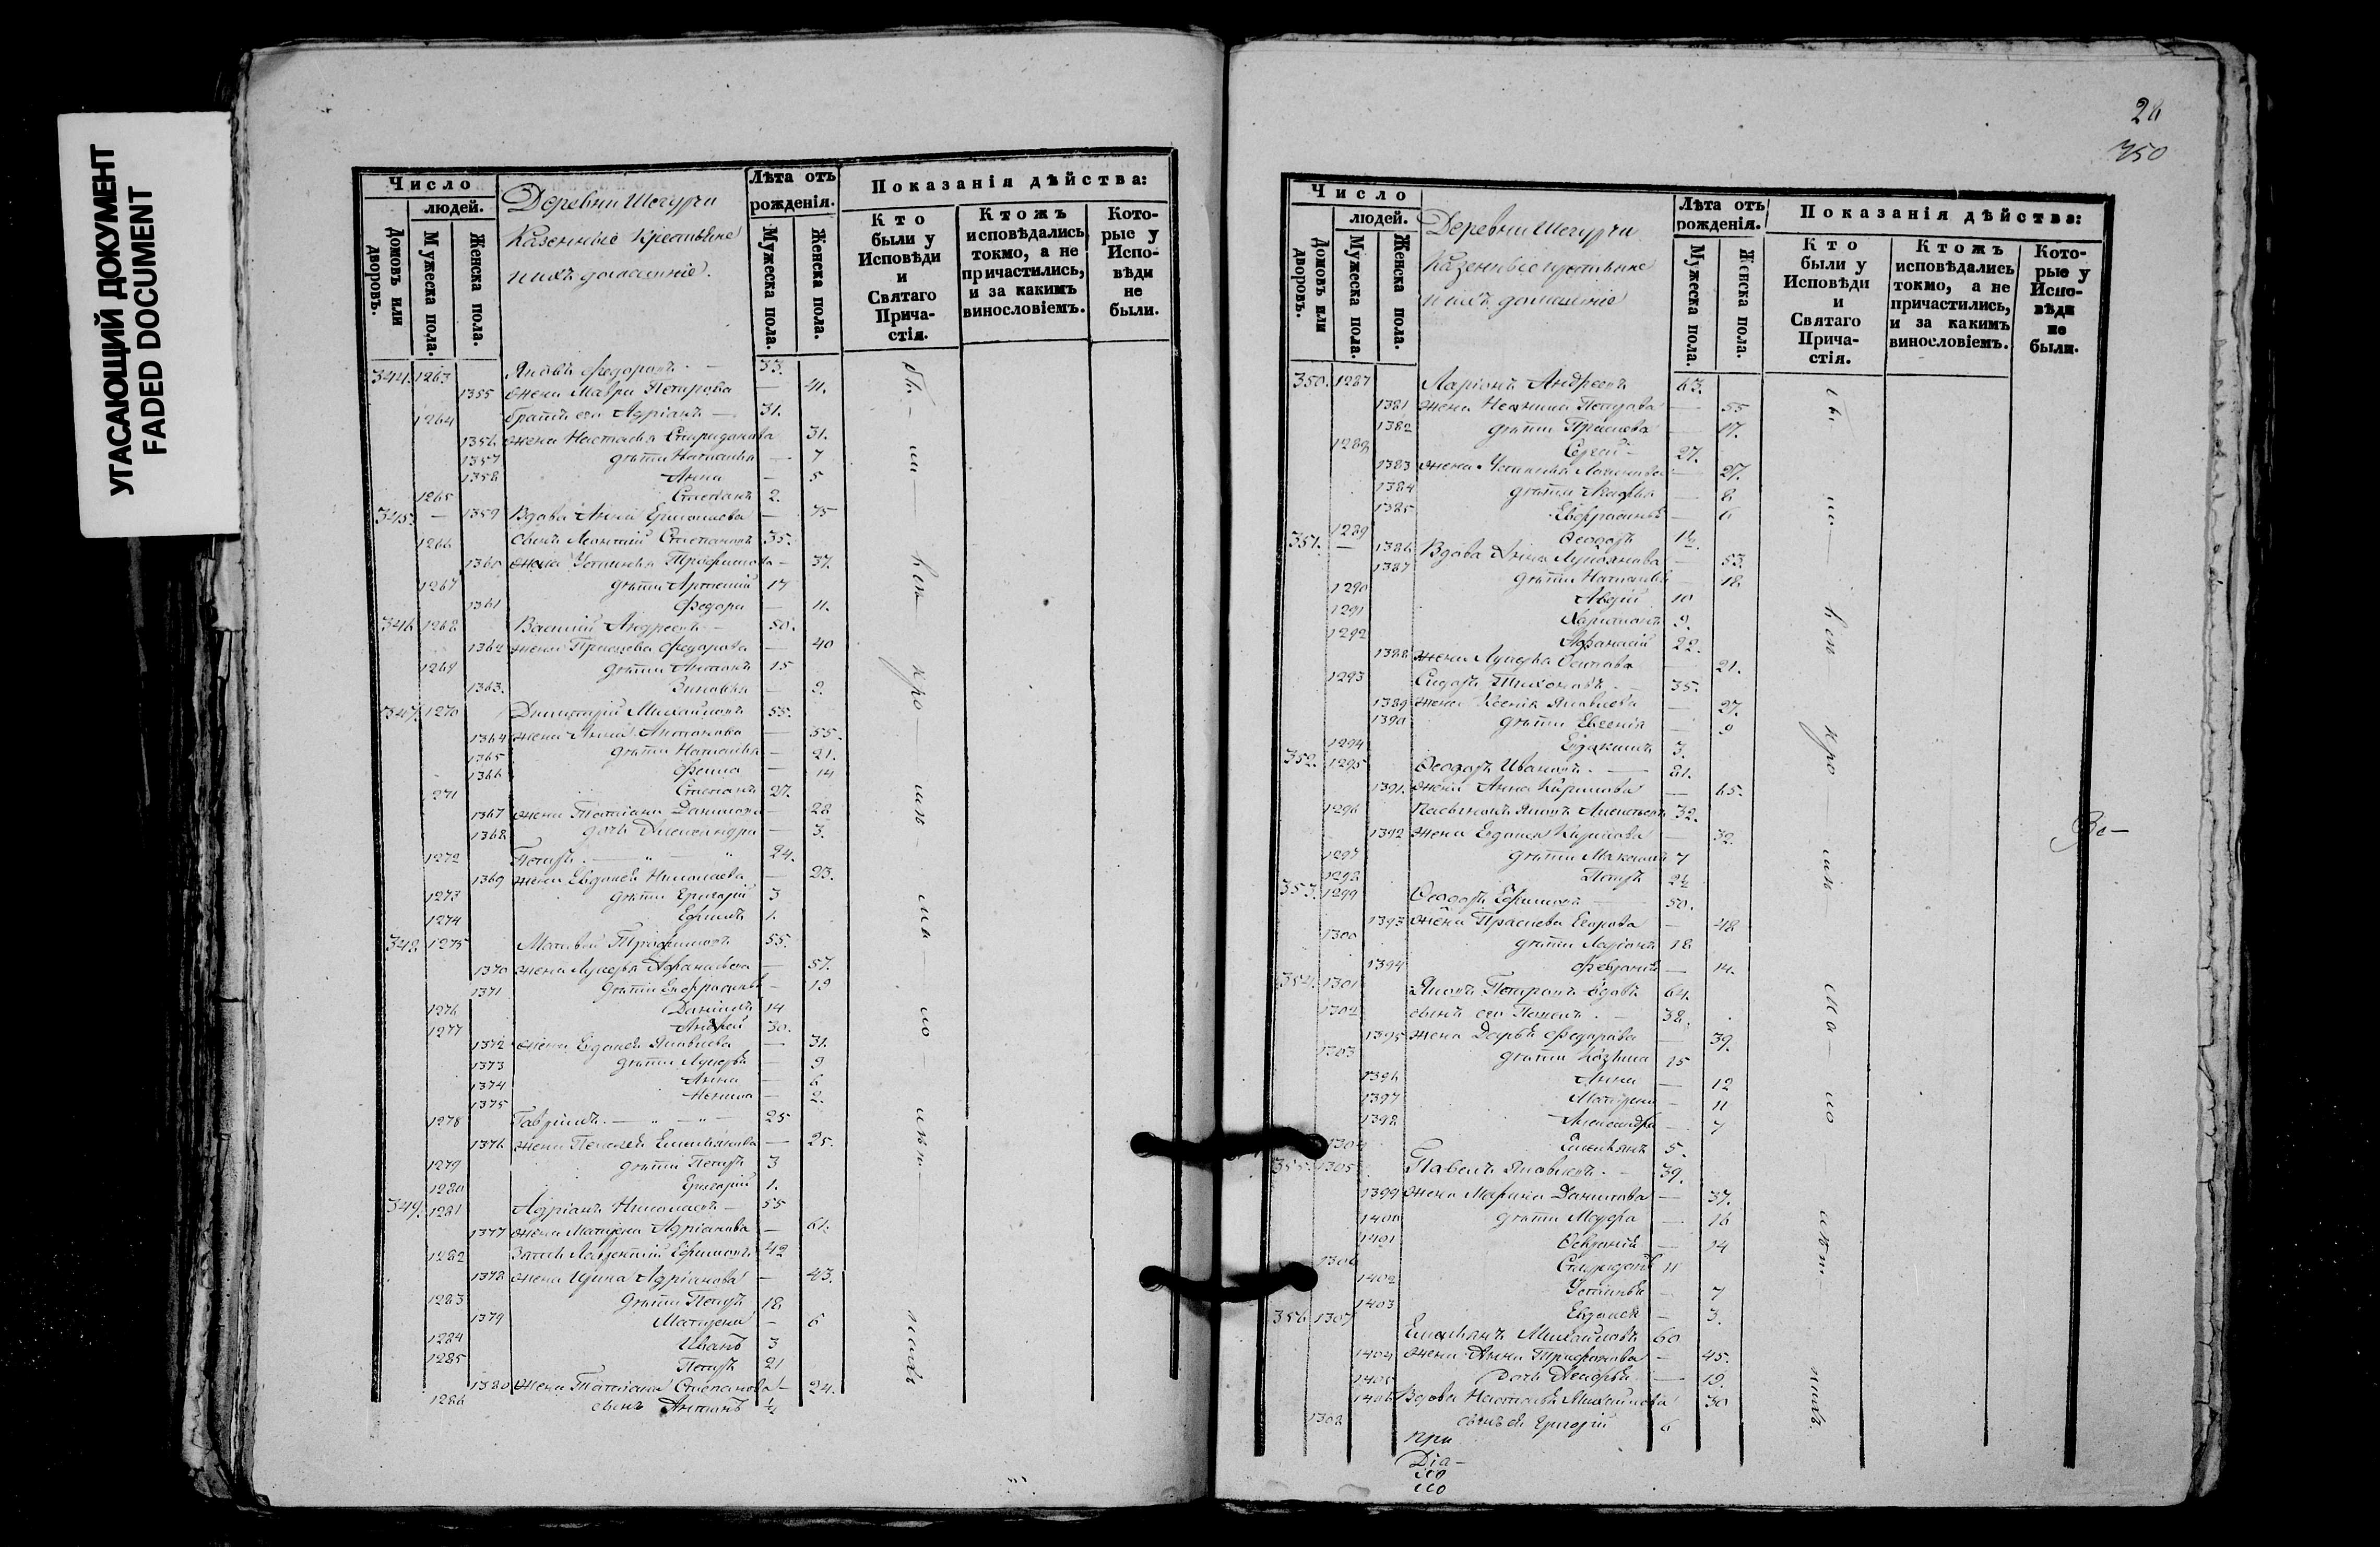 УГАСАЮЩИЙ ДОКУМЕНТ
FADED DOCUMENT
Число
людей.
Домовъ или дворовъ.
Мужеска пола.
Женска пола.
Деревни
Казенные Крестьяне
и ихъ домашніе.
Лѣта отъ рожденія.
Мужеска пола.
Женска пола.
Показанія дѣйства:
Кто были у Исповѣди и Святаго Прича-стія.
Ктожъ исповѣдались токмо, а не причастились, и за какимъ винословіемъ.
Кото-рые у Испо-вѣди не были.
344. 1263 Яковъ Федоровъ 33.
1355 жена Мавра Петрова 41.
1264 братъ его Адріанъ 31.
1356 жена Настасья Спиридонова 31.
1357 дѣти Наталья 7
1358 Анна 5
1265 Степанъ 2.
345. 1359 Вдова Анна Ермолаева 75
1266 сынъ Леонтій Степановъ 35.
1360 жена Устинья Трофимова 37.
1267 дѣти Артемій 17
1361 Федора 11.
346 1268 Василій Андреевъ 50.
1362 жена Прасковья Федорова 40
1269 дѣти Антонъ 15
1363. Зиновья 9.
347. 1270 Димитрій Михайловъ 55.
1364 жена Анна Антонова 55.
1365 дѣти Наталья 21.
1366 Фекла 14
1271 Степанъ 27.
1367 жена Татіана Данилова 28
1368 дочь Александра 3.
1272 Петръ 24.
1369 жена Евдокія Николаева 23.
1273 дѣти Григорій 3
1274 Ефимъ 1.
348. 1275 Матвей Трофимовъ 55.
1370 жена Лукерья Афанасьева 57.
1371 дѣти Евфросинья 19
1276 Даніилъ 14
1277 Андрей 30.
1372 жена Евдокія Яковлева 31.
1373 дѣти Лукерья 9
1374 Анна 6
1375 2.
1278 Гавріилъ 25
1376 жена Пелагея Емельянова 25.
1279 дѣти Петръ 3
1280 Григорій 1.
349. 1281 Адріанъ Николаевъ 55
1377 жена Матрена Адріанова 61.
1282 Зять Лаврентій Ефимовъ 42
1378 жена Ирина Адріанова 43.
1283 дѣти Петръ 18
1379 Матрена 6
1284 Иванъ 3
1285 Петръ 21
1380 жена Татіана Степанова 24.
1286 сынъ Антонъ ½
28
350
Число
людей.
Домовъ или дворовъ.
Мужеска пола.
Женска пола.
Деревни
Казенные крестьяне
и ихъ домашніе
Лѣта отъ рожденія.
Мужеска пола.
Женска пола.
Показанія дѣйства:
Кто были у Исповѣди и Святаго Прича-стія.
Ктожъ исповѣдались токмо, а не причастились, и за какимъ винословіемъ.
Кото-рые у Испо-вѣди не были.
350. 1287 Ларіонъ Андреевъ 63.
1381 жена Неонила Петрова 55
1382 дѣти Прасковья 17.
1288 Сергей 27.
1383 жена Устинья 27.
1384 дѣти 8
1385 Евфросинья 6
1289 Ѳеодоръ 1½.
351. 1386 Вдова Анна Лукьянова 53.
1387 дѣти Наталья 18
1290 10
1291 Харитонъ 9.
1292 Афанасій 22.
1388 жена Лукерья Осипова 21.
1293 Сидоръ Тихоновъ 35.
1389 жена Ксенія Яковлева 27.
1390 дѣти Евгенія 9
1294 Евдокимъ 3.
352. 1295 Ѳеодоръ Ивановъ 81.
1391. жена Анна Кирилова 65.
1296 32.
1392 жена Евдокія Кирилова 32.
1297 дѣти Максимъ 7
1298 Петръ 2½
353. 1299 Ѳеодоръ Ефимовъ 50.
1393 жена Прасковья Егорова 48
1300 дѣти Ларіонъ 18
1394 Февронія 14.
354. 1301 Яковъ Петровъ вдовъ 64.
1302 сынъ его 38.
1395 жена Дарья Федорова 39.
1303 дѣти Козьма 15
1396 Анна 12
1397 Матрена 11
1398 Александра 7
1304 Емельянъ 5.
355. 1305 Павелъ Яковлевъ 39.
1399 жена Марина Данилова 37.
1400 дѣти Марфа 16
1401 Ѳевронія 14
1306 Спиридонъ 11
1402 Устинья 7
1403 Евдокія 3.
356 1307 Емельянъ Михайловъ 60
1404 жена Анна Трифонова 45.
1405 дочь 19.
1406 Вдова Настасья Михайлова 30
1308 сынъ ея Григорій 6
При
Діа-
ко
но